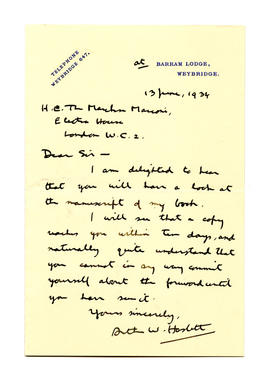 TELEPHONE
WEYBRIDGE 647.
at BARHAM LODGE,
WEYBRIDGE.
13 June, 1934
H.E. The Marchese Marconi,
Electra House
London W.C.2.
Dear Sir —
I am delighted to hear
that you will have a look at
the manuscript of my book.
I will see that a copy
reaches you within ten days, and
naturally quite understand that
you cannot in any way commit
yourself about the foreword until
you have seen it.
Yours sincerely,
Arthur W. Haslett